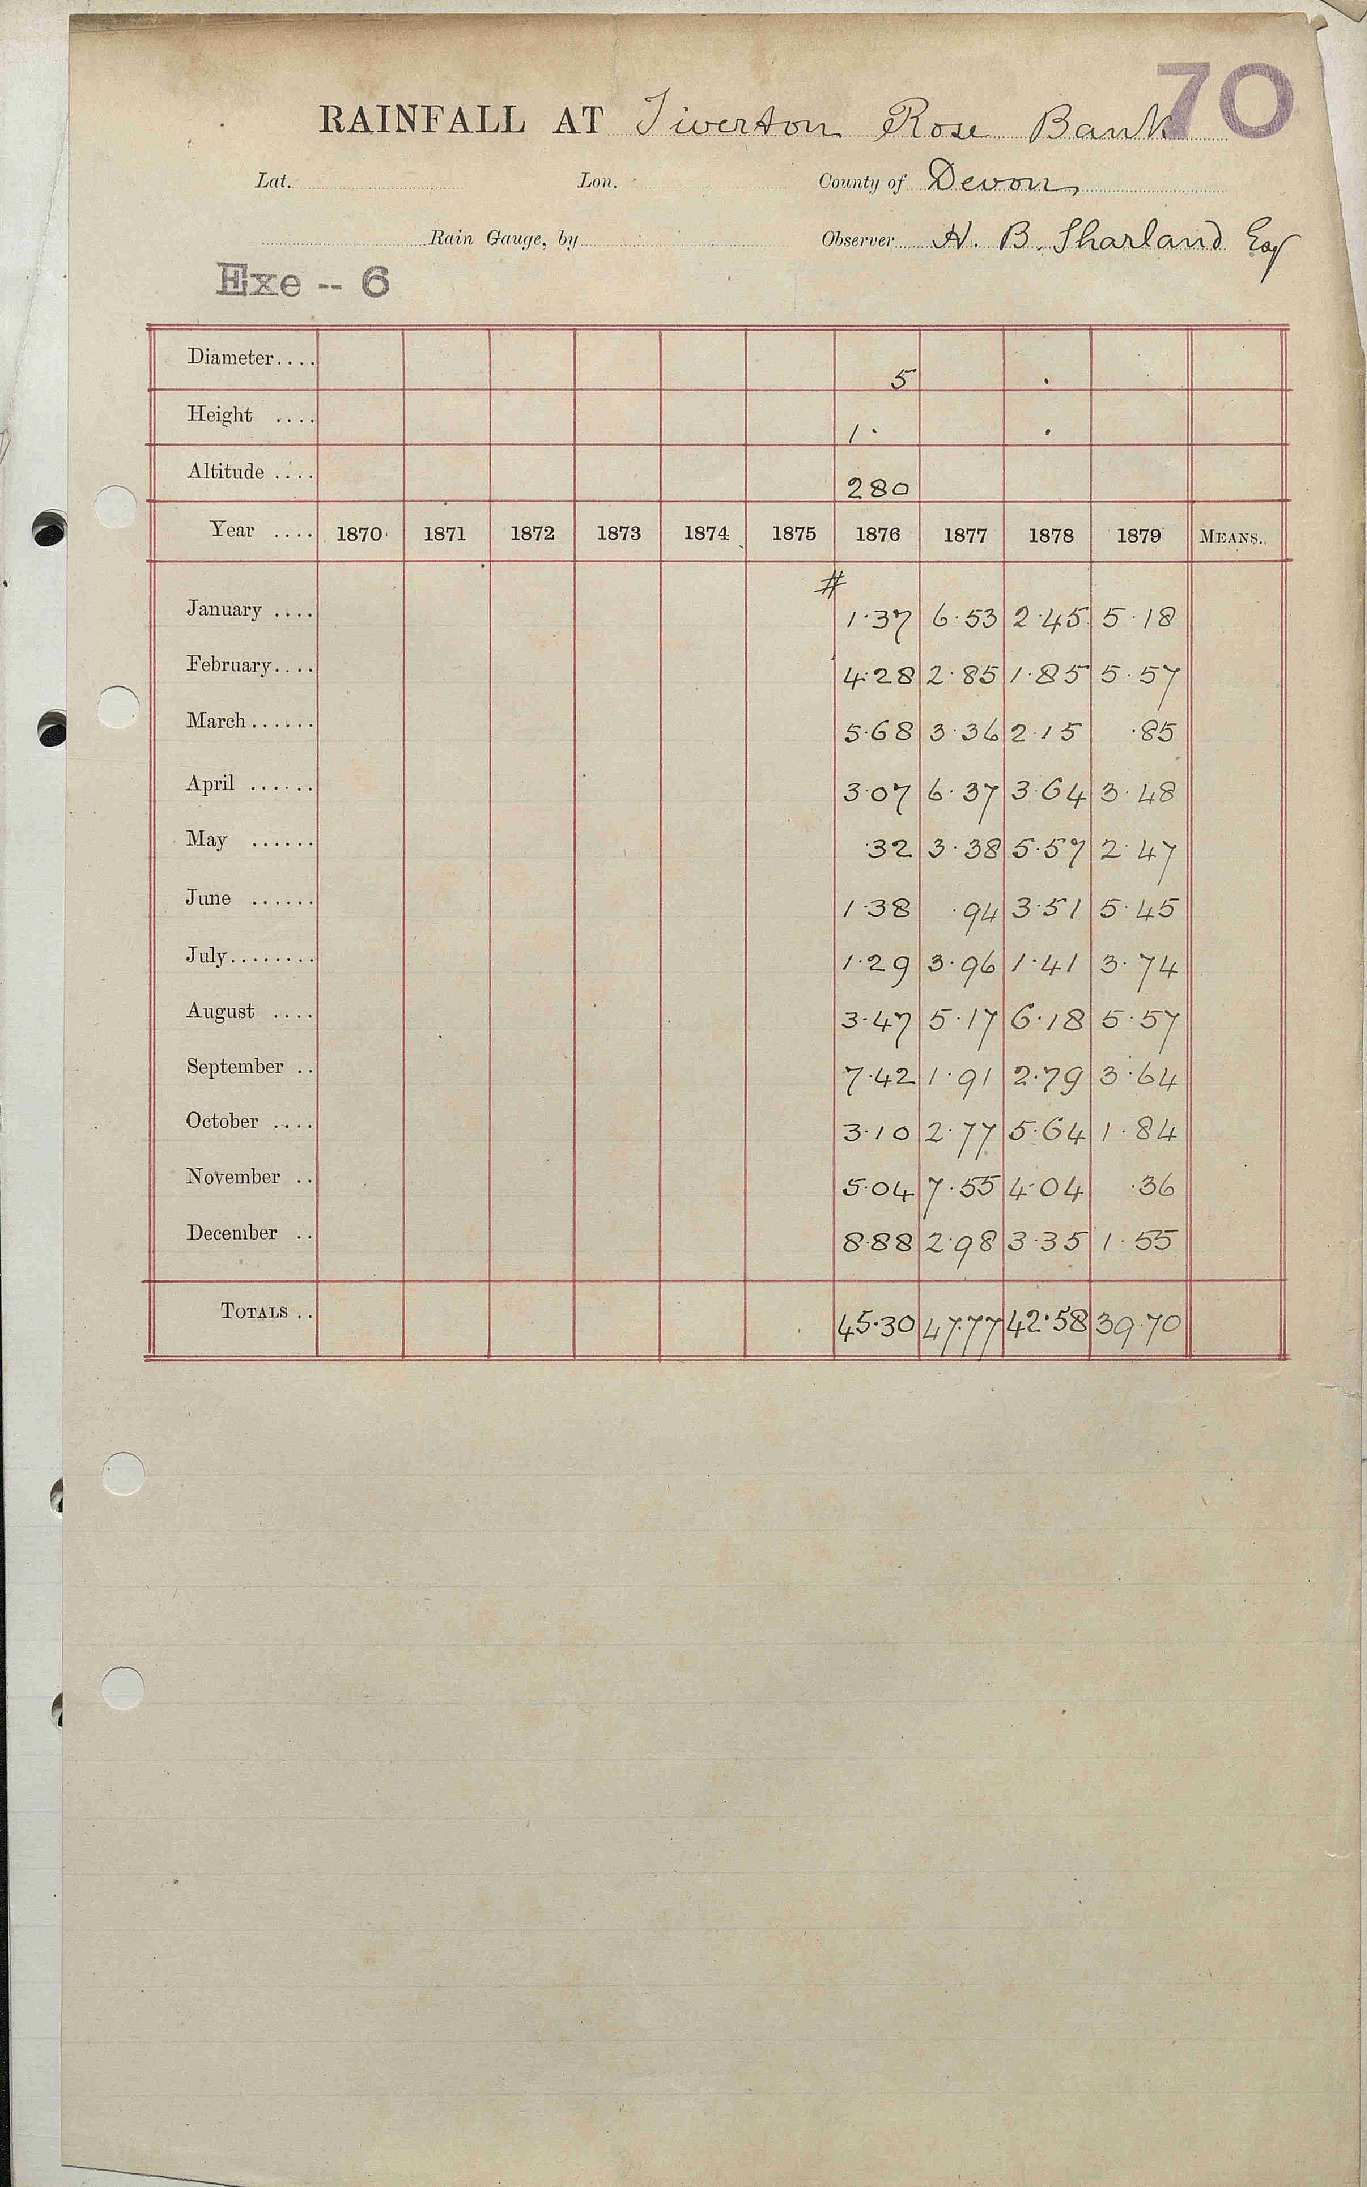 70
RAINFALL AT Tiverton Rose Bank
Lat. Lon. County of Devon
Rain Gauge, by Observer H. B. Sharland Esq
Exe -- 6
Diameter.... 5
Height .... 1.
Altitude .... 280
Year .... 1870 1871 1872 1873 1874 1875 1876 1877 1878 1879 MEANS..
#
January .... 1.37 6.53 2.45 5.18
February.... 4.28 2.85 1.85 5.57
March...... 5.68 3.36 2.15 .85
April ...... 3.07 6.37 3.64 3.48
May ...... .32 3.38 5.57 2.47
June ...... 1.38 .94 3.51 5.45
July........ 1.29 3.96 1.41 3.74
August .... 3.47 5.17 6.18 5.57
September .. 7.42 1.91 2.79 3.64
October .... 3.10 2.77 5.64 1.84
November .. 5.04 7.55 4.04 .36
December .. 8.88 2.98 3.35 1.55
TOTALS .. 45.30 47.77 42.58 39.70